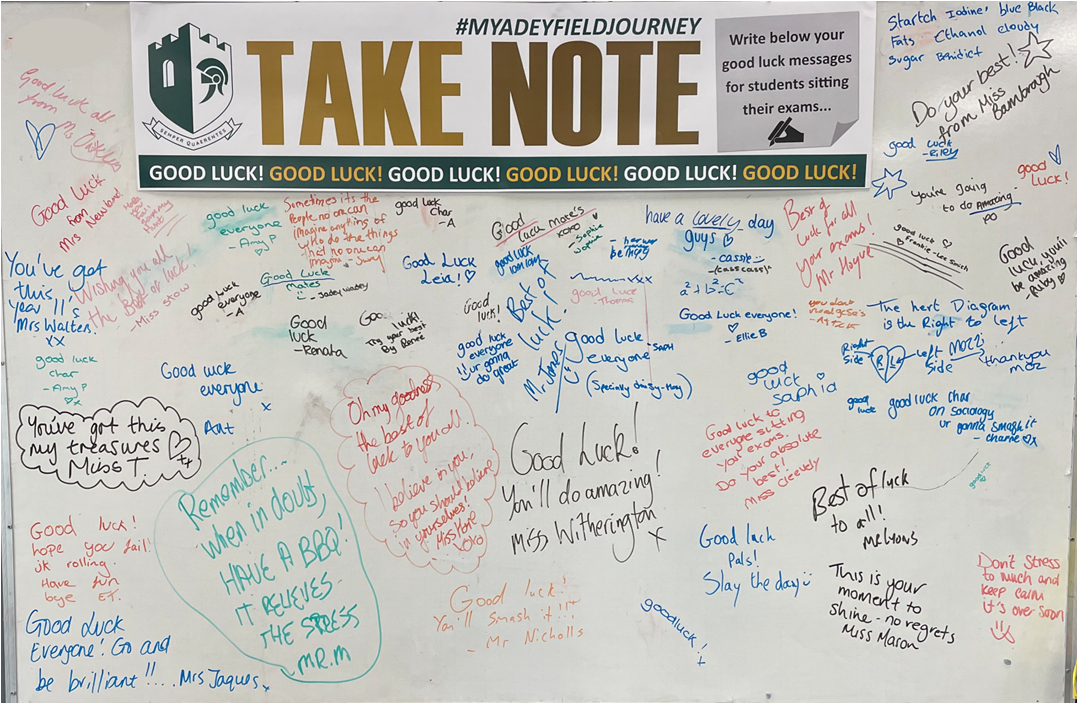 #MYADEYFIELDJOURNEY
TAKE NOTE
Write below your
good luck messages
for students sitting
their exams...
SEMPER QUAERENTES
GOOD LUCK! GOOD LUCK! GOOD LUCK! GOOD LUCK! GOOD LUCK! GOOD LUCK!
Startch Iodine, blue Black
Fats Ethanol cloudy
Sugar
Do your best!
from Miss
Bambrough
good luck
- Riley
good
luck!
You're going
to do Amazing
xoo
Good luck all
from Ms
Good Luck
from
Mrs Newland
good luck
everyone
- Amy P
Sometimes its the
People no one can
imagine anything of
who do the things
that no one can
good luck
char
- A
Good
luck mate's
xoxo
- Sophie
have a lovely day
guys
- cassie
Best of
luck for all
your exams!
Mr Hoyve
good luck
- Frankie - Lee Smith
Good
luck
be amazing
- Ruby
You've got
this
year 11's
Mrs Walter.
xx
Wishing you all
the Best of luck!
- Miss Show
good luck
everyone
- A
Good Luck
Mates
- Jadey wadey
Good Luck
Leia!
good luck
Best of
luck!
Mr Jones
good luck
- Thomas
a² + b² = c²
Good Luck everyone!
- Ellie B
The hert Diagram
is the Right to left
Right
Side
R L
left
Side
thankyou
moz
Good
luck
- Renata
Good luck!
Try your best
By Renee
Good
luck!
good luck
everyone
ur gonna
do great
good luck
everyone
good luck
char
- Amy P
x
Good luck
everyone
x
Ant
good
luck
Saphia
good
luck
good luck char
on sociology
ur gonna smash it
- charlie x
You've got this
my treasures
Miss T.
xx
Oh my goodness
the best of
luck to you all.
I believe in you,
so you should believe
in yourselves!
Miss York
xoxo
Good Luck!
You'll do amazing!
Miss Witherington
x
Good luck to
everyone sitting
your exams.
Do your absolute
best!
Miss Cleevdy
Best of luck
to all!
Mr Lyons
good luck
Remember...
when in doubt,
HAVE A BBQ!
IT RELIEVES
THE STRESS
MR.M
Good luck!
hope you fail!
jk rolling.
Have fun
bye ET.
Good luck
Pals!
Slay the day
This is your
moment to
shine - no regrets
Miss Mason
Don't Stress
to much and
keep calm
it's over soon
Good luck!
You'll Smash it!!!
- Mr Nicholls
good luck!
x
Good Luck
Everyone! Go and
be brilliant!!... Mrs Jaques x